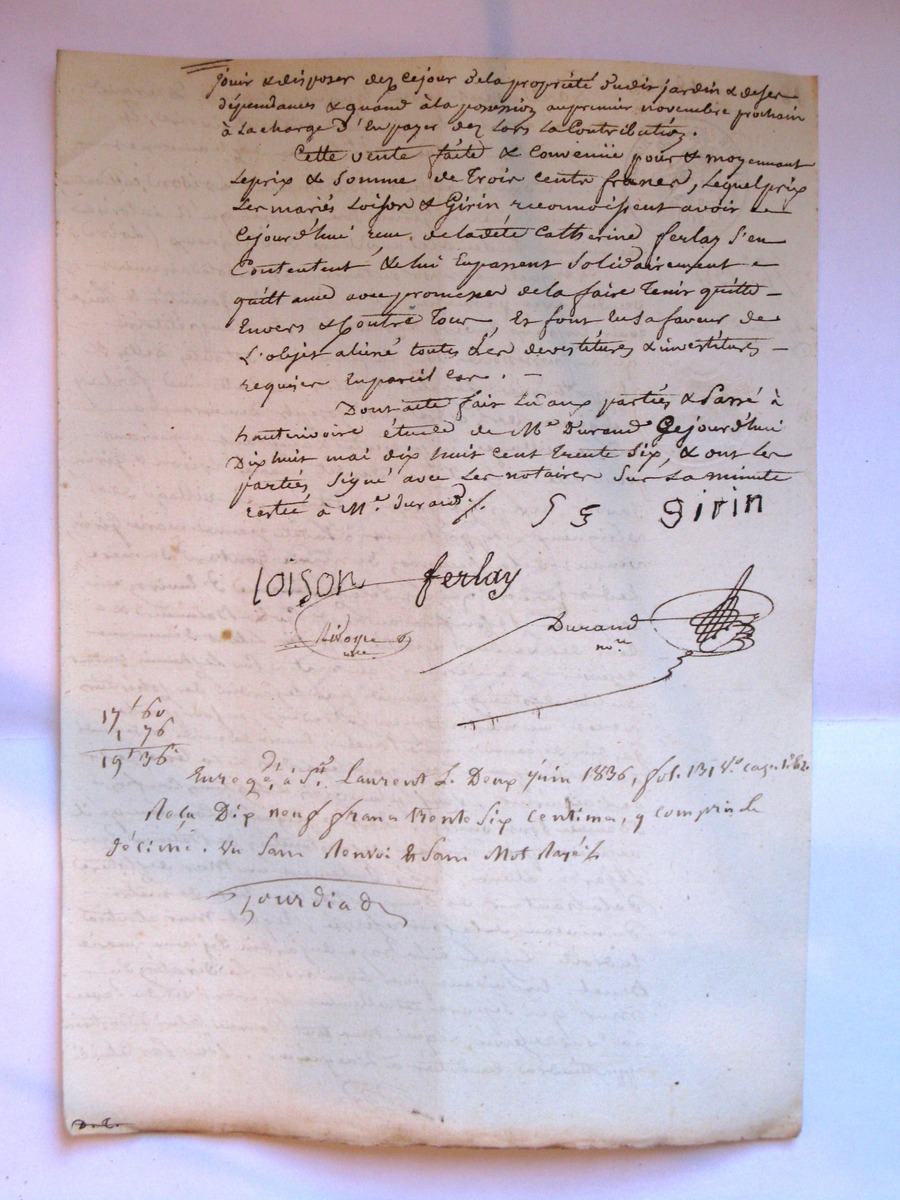 jouir & disposer dez cejour dela propriété dudit jardin & deses
dépendances & quand à la possession au premier novembre prochain
à La charge d'En payer dez Lors La Contribution.
Cette vente faite & Convenüe pour & moyennant
Le prix & Somme de Trois cents francs, Lequel prix
Les mariés Loison & Girin reconnoissent avoir
Cejourd'hui reçu de ladite Catherine ferlay s'en
Contentent & lui En passent Solidairement
quittance avec promesse de la faire Tenir quitte
Envers & Contre Tous, Et font En sa faveur de
L'objet aliéné toutes Les devestitures & investitures
requises En pareil cas.
Dont acte fait Lu aux parties & Passé à
hauterivoire étude de Me. Durand Cejourd'hui
Dix huit mai dix huit cent trente Six, & ont Les
parties Signé avec Les notaires Sur La minute
restée à Me. Durand.
Girin
Loison ferlay
Durand
nore.
17f 60
1 76
19f 36c
Enregé. à St. Laurent L. Deux juin 1836, fol. 131 Vo. case 1
Reçu Dix neuf francs trente Six Centimes, y compris le
décime. Vu Sans Renvoi & Sans Mot Rayé